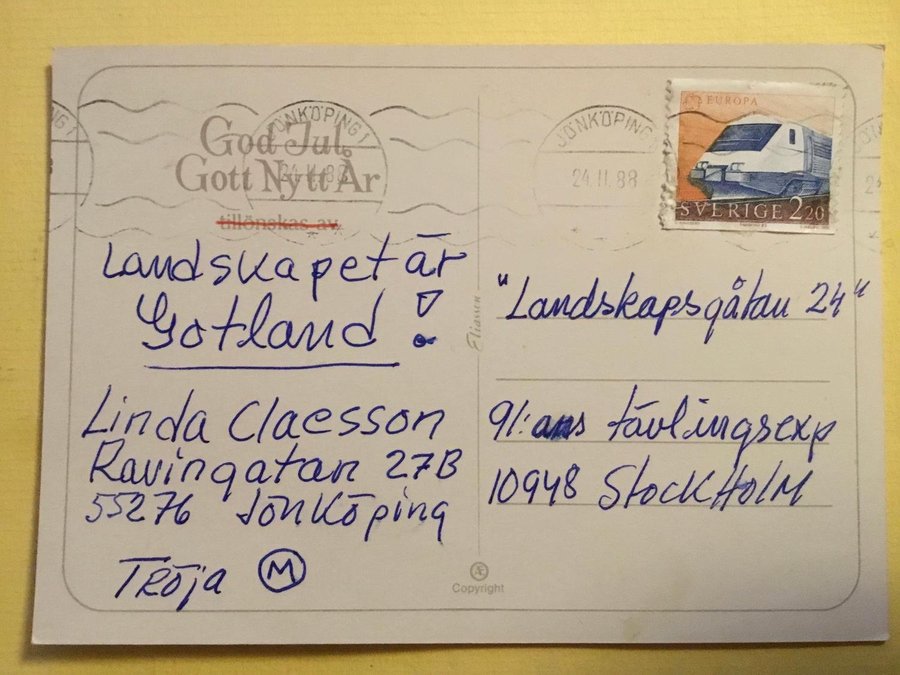 JÖNKÖPING 1
24.11.88
God Jul
Gott Nytt År
tillönskas av
Landskapet är
Gotland!
Linda Claesson
Ravingatan 27B
55276 Jönköping
Tröja M
Eliasson
Æ
Copyright
JÖNKÖPING
24.11.88
EUROPA
SVERIGE 220
"Landskapsgåtan 24"
91:ans tävlingsexp
10948 StockHolM